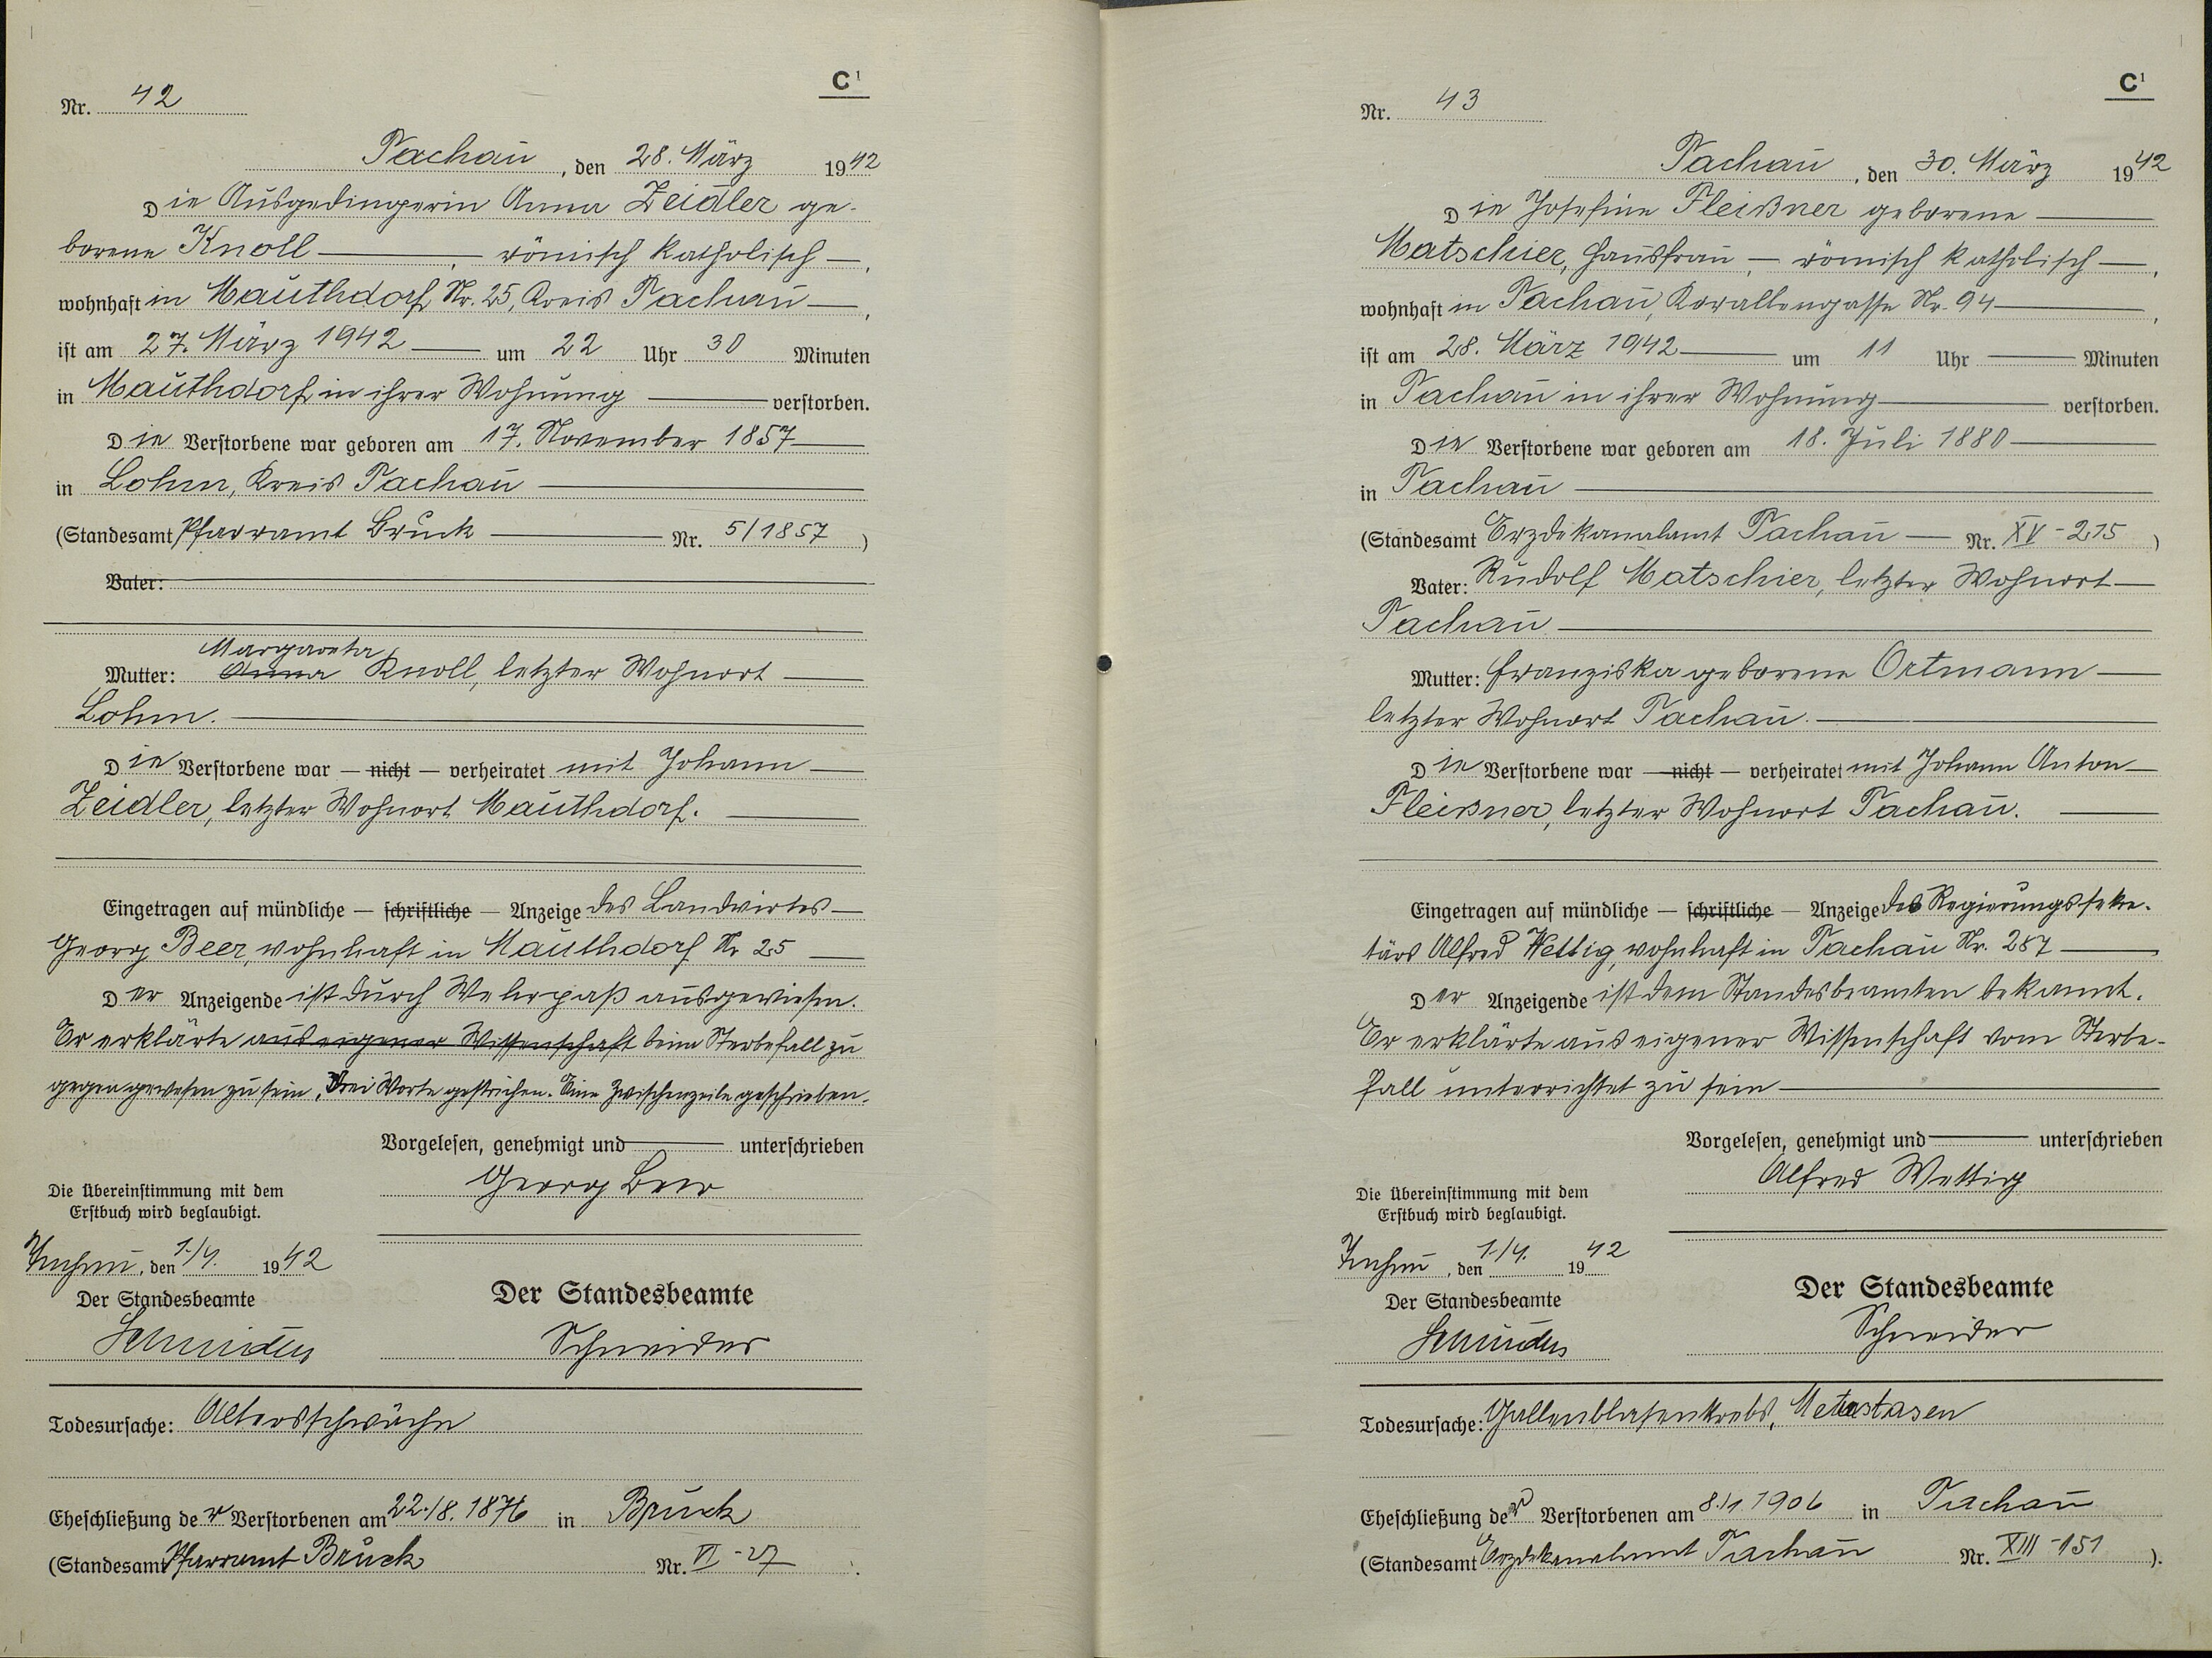 C¹
Nr. 42
Tachau, den 28. März 1942
Die Ausgedingerin Anna Zeidler ge-
borene Knoll —, römisch katholisch —,
wohnhaft in Mauthdorf Nr. 25, Kreis Tachau —,
ist am 27. März 1942 — um 22 Uhr 30 Minuten
in Mauthdorf in ihrer Wohnung — verstorben.
Die Verstorbene war geboren am 17. November 1857 —
in Lohm, Kreis Tachau —
(Standesamt Pfarramt Bruck — Nr. 5/1857)
Vater: —
Margareta
Mutter: Anna Knoll, letzter Wohnort —
Lohm. —
Die Verstorbene war — nicht — verheiratet mit Johann —
Zeidler, letzter Wohnort Mauthdorf. —
Eingetragen auf mündliche — schriftliche — Anzeige des Landwirtes —
Georg Beer, wohnhaft in Mauthdorf Nr 25 —
Der Anzeigende ist durch Wehrpaß ausgewiesen.
Er erklärte aus eigener Wissenschaft beim Sterbefall zu
gegen gewesen zu sein. Drei Worte gestrichen. Eine Zwischenzeile geschrieben.
Vorgelesen, genehmigt und — unterschrieben
Georg Beer
Die Übereinstimmung mit dem
Erstbuch wird beglaubigt.
Tachau, den 1./4. 1942
Der Standesbeamte
Schneider
Der Standesbeamte
Schneider
Todesursache: Altersschwäche
Eheschließung der Verstorbenen am 22./8. 1876 in Bruck
(Standesamt Pfarramt Bruck Nr. VI-27.
C¹
Nr. 43
Tachau, den 30. März 1942
Die Josefine Fleißner geborene —
Matschier, Hausfrau, — römisch katholisch —,
wohnhaft in Tachau, Korallengasse Nr. 94 —,
ist am 28. März 1942 — um 11 Uhr — Minuten
in Tachau in ihrer Wohnung — verstorben.
Die Verstorbene war geboren am 18. Juli 1880 —
in Tachau —
(Standesamt Erzdekanalamt Tachau — Nr. XV-215)
Vater: Rudolf Matschier, letzter Wohnort —
Tachau —
Mutter: Franziska geborene Ortmann —
letzter Wohnort Tachau. —
Die Verstorbene war — nicht — verheiratet mit Johann Anton —
Fleißner, letzter Wohnort Tachau. —
Eingetragen auf mündliche — schriftliche — Anzeige des Regierungssekre-
tärs Alfred Wettig, wohnhaft in Tachau Nr. 287 —
Der Anzeigende ist dem Standesbeamten bekannt.
Er erklärte aus eigener Wissenschaft vom Sterbe-
fall unterrichtet zu sein —
Vorgelesen, genehmigt und — unterschrieben
Alfred Wettig
Die Übereinstimmung mit dem
Erstbuch wird beglaubigt.
Tachau, den 1./4. 1942
Der Standesbeamte
Schneider
Der Standesbeamte
Schneider
Todesursache: Gallenblasenkrebs, Metastasen
Eheschließung der Verstorbenen am 8./1. 1906 in Tachau
(Standesamt Erzdekanalamt Tachau Nr. XIII-151).